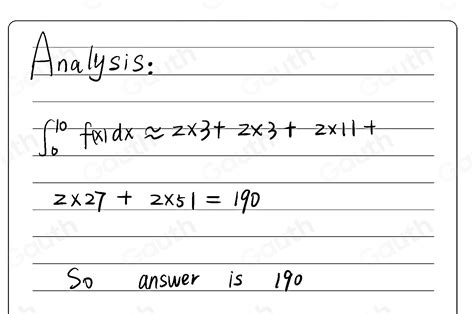 Analysis:
∫₀¹⁰ f(x)dx ≈ 2×3+ 2×3+ 2×11+
2×27 + 2×51 = 190
So answer is 190